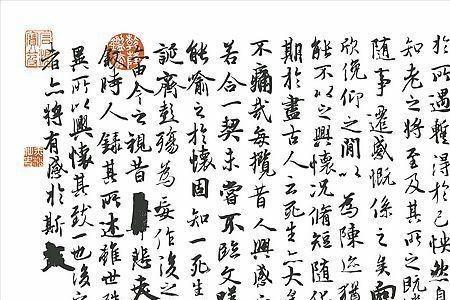 於所遇暫得於己怏然自
知老之將至及其所之既
隨事遷感慨係之矣向
欣俛仰之閒以為陳迹猶
能不以之興懷況脩短隨化
期於盡古人云死生亦大
不痛哉每攬昔人興感之
若合一契未嘗不臨文嗟
能喻之於懷固知一死生
誕齊彭殤為妄作後之
由今之視昔悲夫
敘時人錄其所述雖世殊
異所以興懷其致一也後之
者亦將有感於斯文